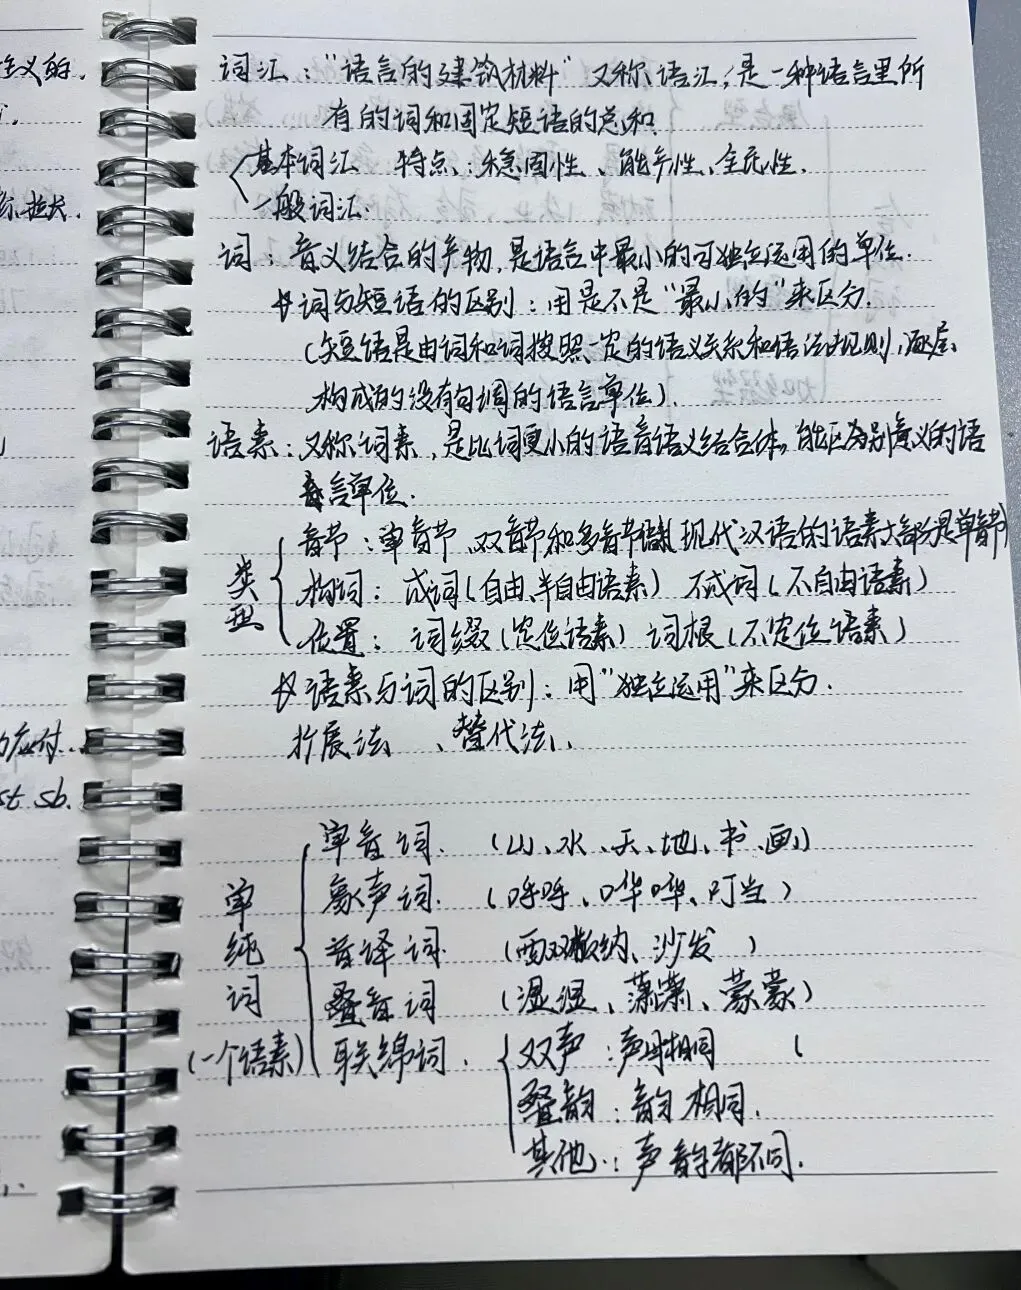 主义的.
拉长.
应付.
st sb.
词汇："语言的建筑材料" 又称语汇，是一种语言里所
有的词和固定短语的总和.
基本词汇 特点：稳固性、能产性、全民性.
一般词汇.
词：音义结合的产物，是语言中最小的可独立运用的单位.
词与短语的区别：用是不是"最小的"来区分.
（短语是由词和词按照一定的语义关系和语法规则，逐层
构成的没有句调的语言单位）.
语素：又称词素，是比词更小的语音语义结合体，能区别意义的语
言单位.
类型
音节：单音节、双音节和多音节（现代汉语的语素大部分是单音节）
构词：成词（自由、半自由语素） 不成词（不自由语素）
位置：词缀（定位语素） 词根（不定位语素）
语素与词的区别：用"独立运用"来区分.
扩展法、替代法、
单纯词
（一个语素）
单音词. （山、水、天、地、书、画、）
象声词. （呼呼、哗哗、叮当）
音译词 （西双版纳、沙发）
叠音词 （潇潇、蒙蒙）
联绵词.
双声：声母相同 （
叠韵：韵相同.
其他：声韵都不同.